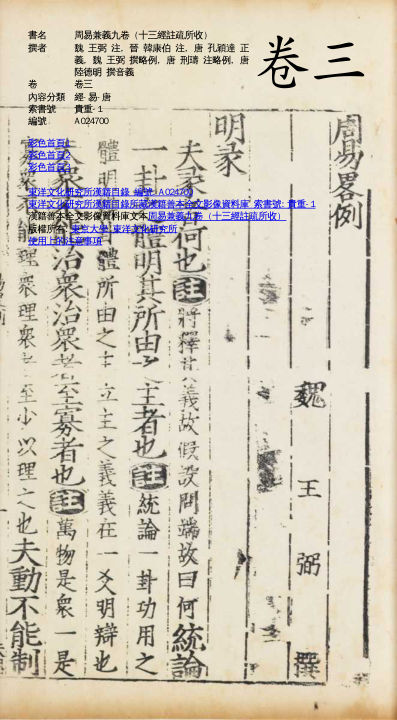 書名 周易兼義九卷（十三經註疏所收）
撰者 魏 王弼 注, 晉 韓康伯 注, 唐 孔穎達 正
義, 魏 王弼 撰略例, 唐 邢璹 注略例, 唐
陸德明 撰音義
卷 卷三
內容分類 經-易-唐
索書號 貴重-1
編號 A024700
卷三
彩色首頁1
彩色首頁2
彩色首頁3
東洋文化研究所漢籍目錄 編號: A024700
東洋文化研究所漢籍目錄所藏漢籍善本全文影像資料庫 索書號: 貴重-1
漢籍善本全文影像資料庫文本周易兼義九卷（十三經註疏所收）
版權所有: 東京大學 東洋文化研究所
使用上的注意事項
周易畧例
魏 王 弼 撰
明彖
夫彖者何也註將釋其義故假設問端故曰何統論
一卦之體明其所由之主者也註統論一卦功用之
體明 體所由之主立主之義義在一爻明辯也
夫衆不能治衆治衆者至寡者也註萬物是衆一是
寡衆不能理衆理衆 至少以理之也夫動不能制